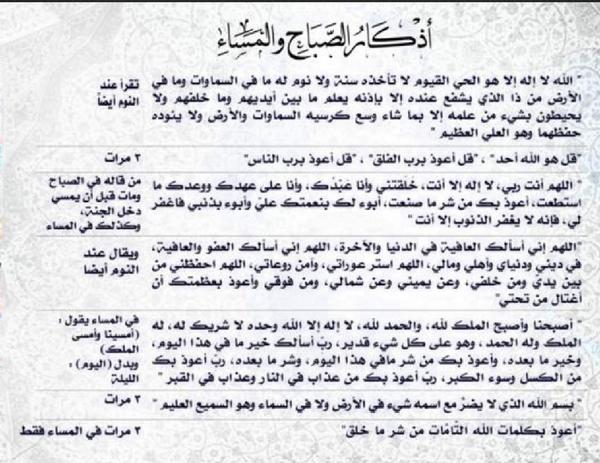 أذكار الصباح والمساء
" الله لا إله إلا هو الحي القيوم لا تأخذه سنة ولا نوم له ما في السماوات وما في
الأرض من ذا الذي يشفع عنده إلا بإذنه يعلم ما بين أيديهم وما خلفهم ولا
يحيطون بشيء من علمه إلا بما شاء وسع كرسيه السماوات والأرض ولا ينوده
حفظهما وهو العلي العظيم "
تقرأ عند
النوم أيضاً
"قل هو الله أحد" ، "قل أعوذ برب الفلق" ، "قل أعوذ برب الناس"
٣ مرات
" اللهم أنت ربي، لا إله إلا أنت، خلقتني وأنا عبدك، وأنا على عهدك ووعدك ما
استطعت، أعوذ بك من شر ما صنعت، أبوء لك بنعمتك علي وأبوء بذنبي فاغفر
لي، فإنه لا يغفر الذنوب إلا أنت "
من قاله في الصباح
ومات قبل أن يمسي
دخل الجنة،
وكذلك في المساء
"اللهم إني أسألك العافية في الدنيا والآخرة، اللهم إني أسألك العفو والعافية،
في ديني ودنياي وأهلي ومالي، اللهم استر عوراتي، وآمن روعاتي، اللهم احفظني من
بين يدي ومن خلفي، وعن يميني وعن شمالي، ومن فوقي وأعوذ بعظمتك أن
أغتال من تحتي"
ويقال عند
النوم أيضا
" أصبحنا وأصبح الملك لله، والحمد لله، لا إله إلا الله وحده لا شريك له، له
الملك وله الحمد، وهو على كل شيء قدير، رب أسألك خير ما في هذا اليوم،
وخير ما بعده، وأعوذ بك من شر ما في هذا اليوم، وشر ما بعده، رب أعوذ بك
من الكسل وسوء الكبر، رب أعوذ بك من عذاب في النار وعذاب في القبر "
في المساء يقول :
(أمسينا وأمسى
الملك)
ويدل (اليوم) :
الليلة
" بسم الله الذي لا يضر مع اسمه شيء في الأرض ولا في السماء وهو السميع العليم "
٣ مرات
"أعوذ بكلمات الله التامات من شر ما خلق"
٣ مرات في المساء فقط